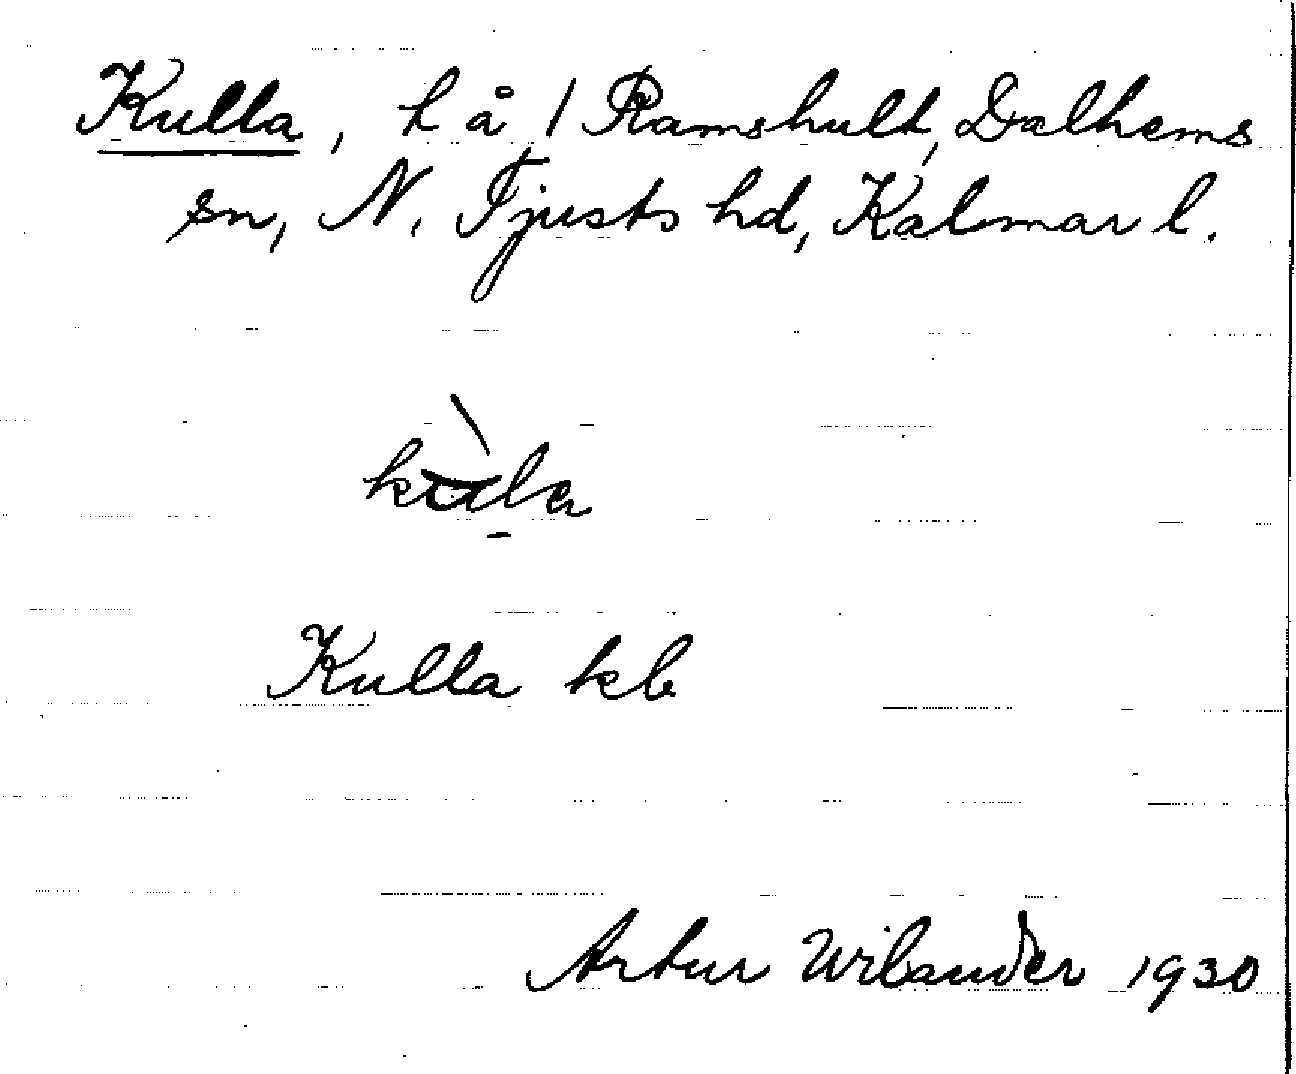 Kulla, t å / Ramshult, Dalhems
sn, N. Tjusts hd, Kalmar l.
Kulla kb
Artur Wilander 1930